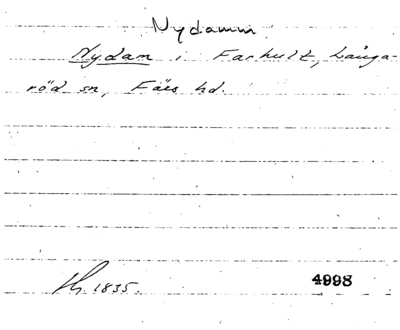 Nydamm
Nydam i Farhult, Långa-
röd sn, Färs hd.
1835.
4998